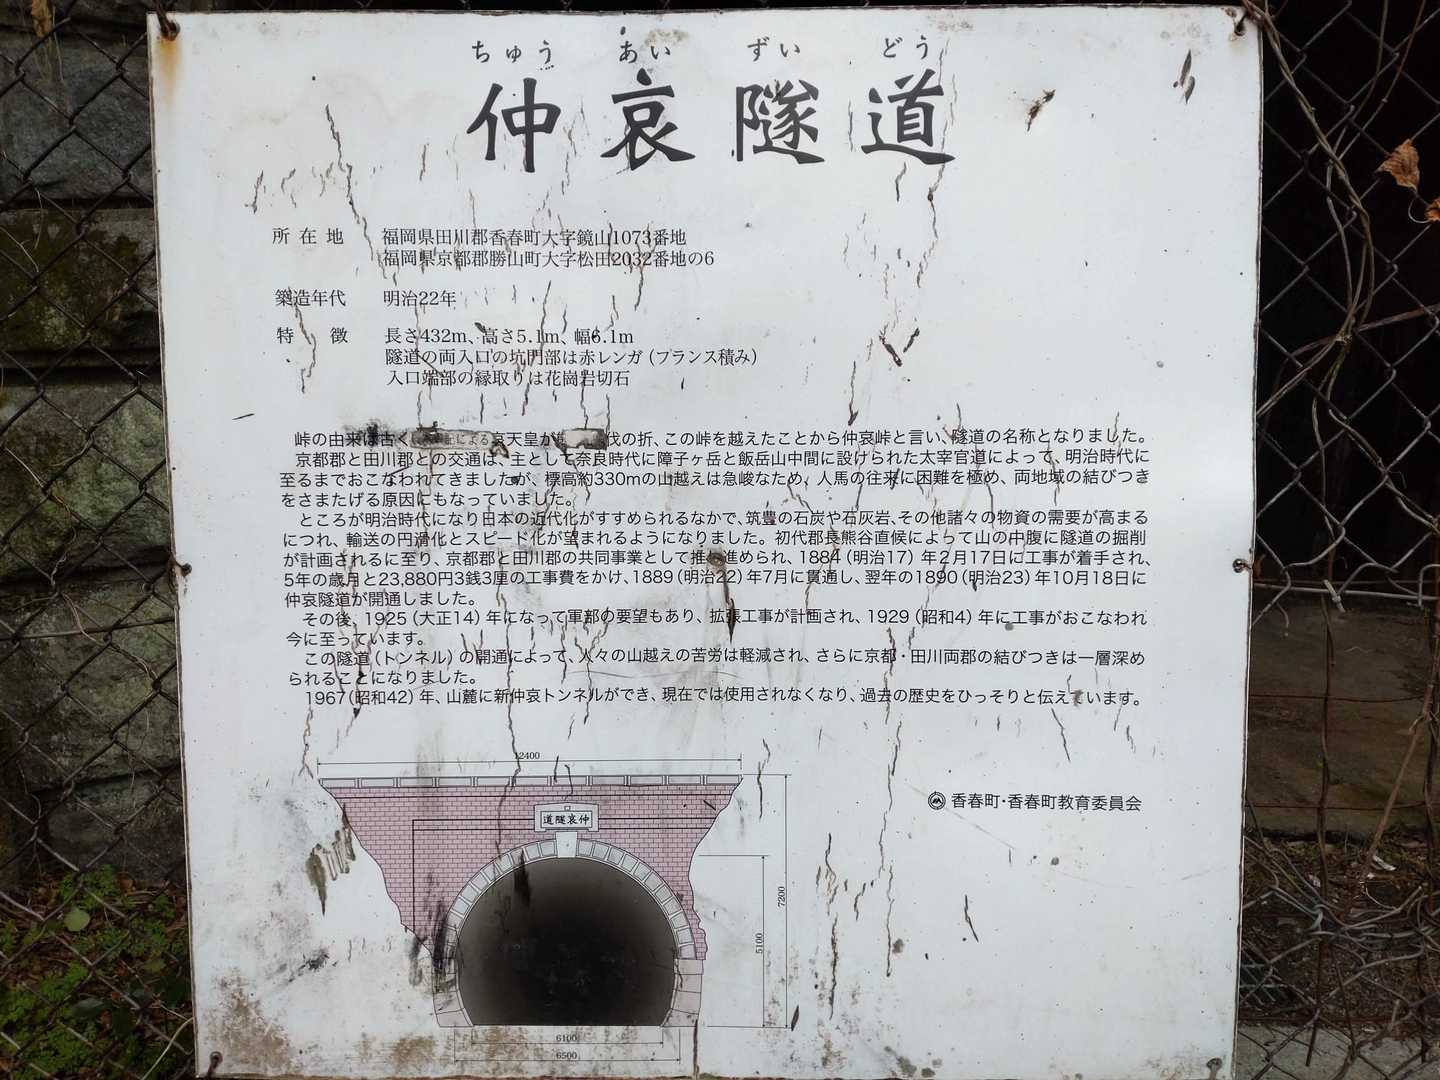 ちゅう あい ずい どう
仲哀隧道
所在地 福岡県田川郡香春町大字鏡山1073番地
福岡県京都郡勝山町大字松田2032番地の6
築造年代 明治22年
特徴 長さ432m、高さ5.1m、幅6.1m
隧道の両入口の坑門部は赤レンガ(フランス積み)
入口端部の縁取りは花崗岩切石
峠の由来は古く による 哀天皇が 伐の折、この峠を越えたことから仲哀峠と言い、隧道の名称となりました。
京都郡と田川郡との交通は、主として奈良時代に障子ヶ岳と飯岳山中間に設けられた太宰官道によって、明治時代に
至るまでおこなわれてきましたが、標高約330mの山越えは急峻なため、人馬の往来に困難を極め、両地域の結びつき
をさまたげる原因にもなっていました。
ところが明治時代になり日本の近代化がすすめられるなかで、筑豊の石炭や石灰岩、その他諸々の物資の需要が高まる
につれ、輸送の円滑化とスピード化が望まれるようになりました。初代郡長熊谷直候によって山の中腹に隧道の掘削
が計画されるに至り、京都郡と田川郡の共同事業として推し進められ、1884(明治17)年2月17日に工事が着手され、
5年の歳月と23,880円3銭3厘の工事費をかけ、1889(明治22)年7月に貫通し、翌年の1890(明治23)年10月18日に
仲哀隧道が開通しました。
その後、1925(大正14)年になって軍部の要望もあり、拡張工事が計画され、1929(昭和4)年に工事がおこなわれ
今に至っています。
この隧道(トンネル)の開通によって、人々の山越えの苦労は軽減され、さらに京都・田川両郡の結びつきは一層深め
られることになりました。
1967(昭和42)年、山麓に新仲哀トンネルができ、現在では使用されなくなり、過去の歴史をひっそりと伝えています。
12400
道隧哀仲
香春町・香春町教育委員会
7200
5100
6100
6500